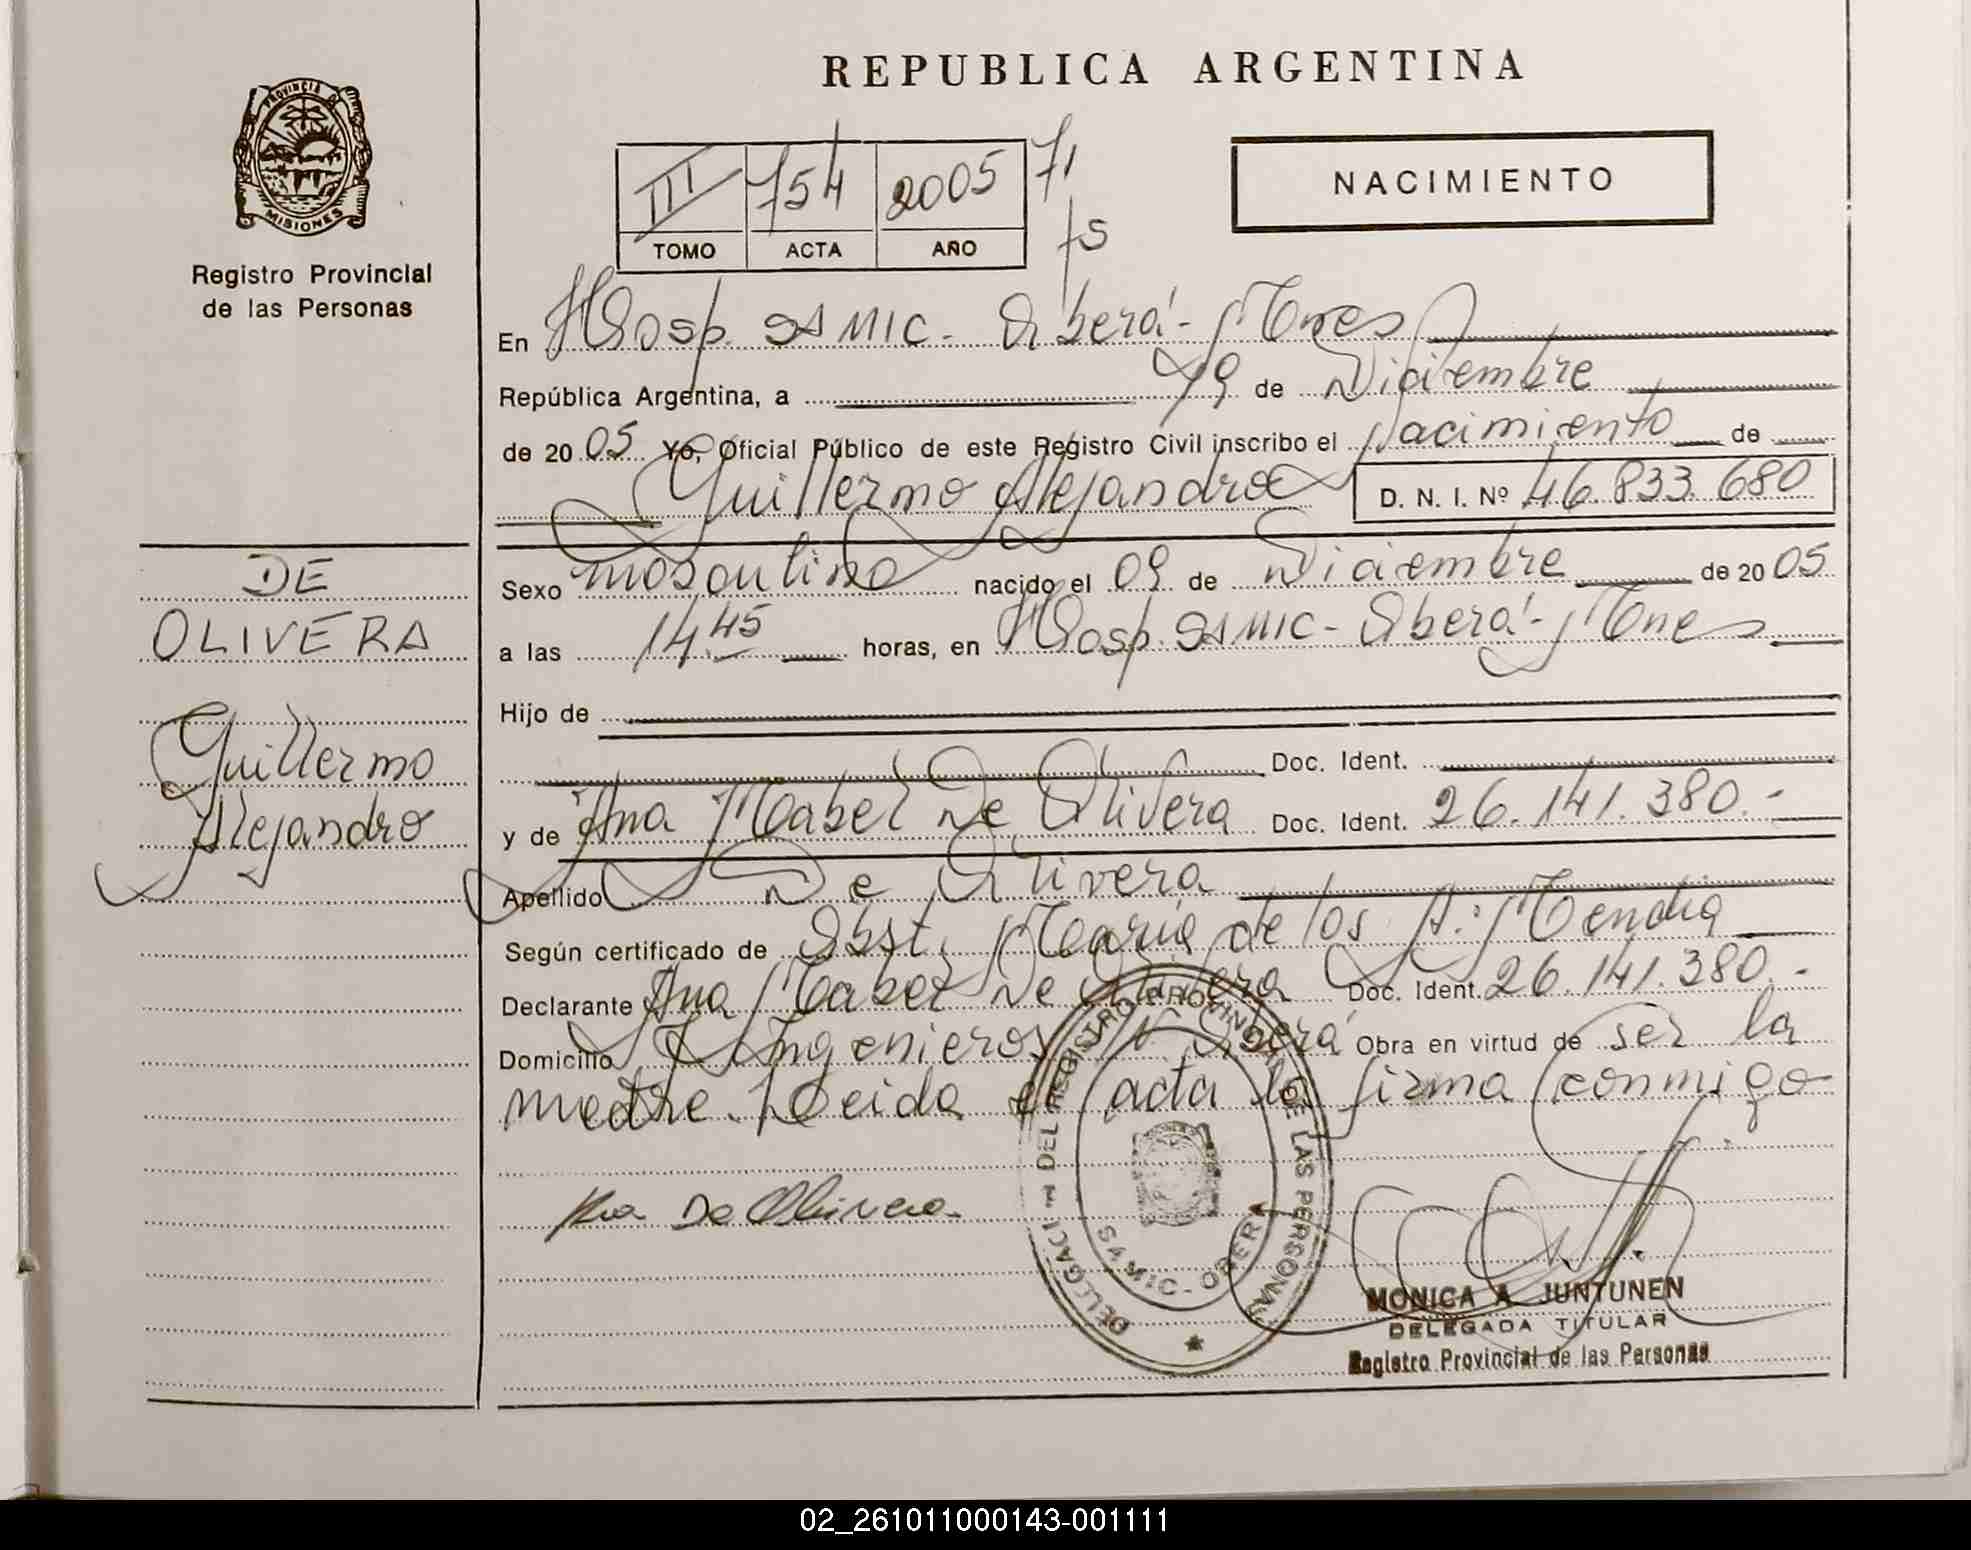 REPUBLICA ARGENTINA
PROVINCIA DE
MISIONES
Registro Provincial
de las Personas
NACIMIENTO
III 754 2005 71
TOMO ACTA AÑO
fs
En Hosp. SAMIC - Oberá - Mnes
República Argentina, a 19 de Diciembre
de 2005 Yo, Oficial Público de este Registro Civil inscribo el Nacimiento de
Guillermo Alejandro D. N. I. Nº 46.833.680
DE
OLIVERA
Guillermo
Alejandro
Sexo masculino nacido el 09 de Diciembre de 2005
a las 14.45 horas, en Hosp. SAMIC - Oberá - Mnes
Hijo de
Doc. Ident.
y de Ana Mabel De Olivera Doc. Ident. 26.141.380.-
Apellido De Olivera
Según certificado de Obst. María de los A. Mendia
Declarante Ana Mabel De Olivera Doc. Ident. 26.141.380.-
Domicilio J. Ingenieros Oberá Obra en virtud de ser la
madre. Leida el acta la firma conmigo
Ana De Olivera
DELEGACI DEL REGISTRO PROVINCIAL DE LAS PERSONAS
SAMIC - OBERA
MONICA A. JUNTUNEN
DELEGADA TITULAR
Registro Provincial de las Personas
02_261011000143-001111